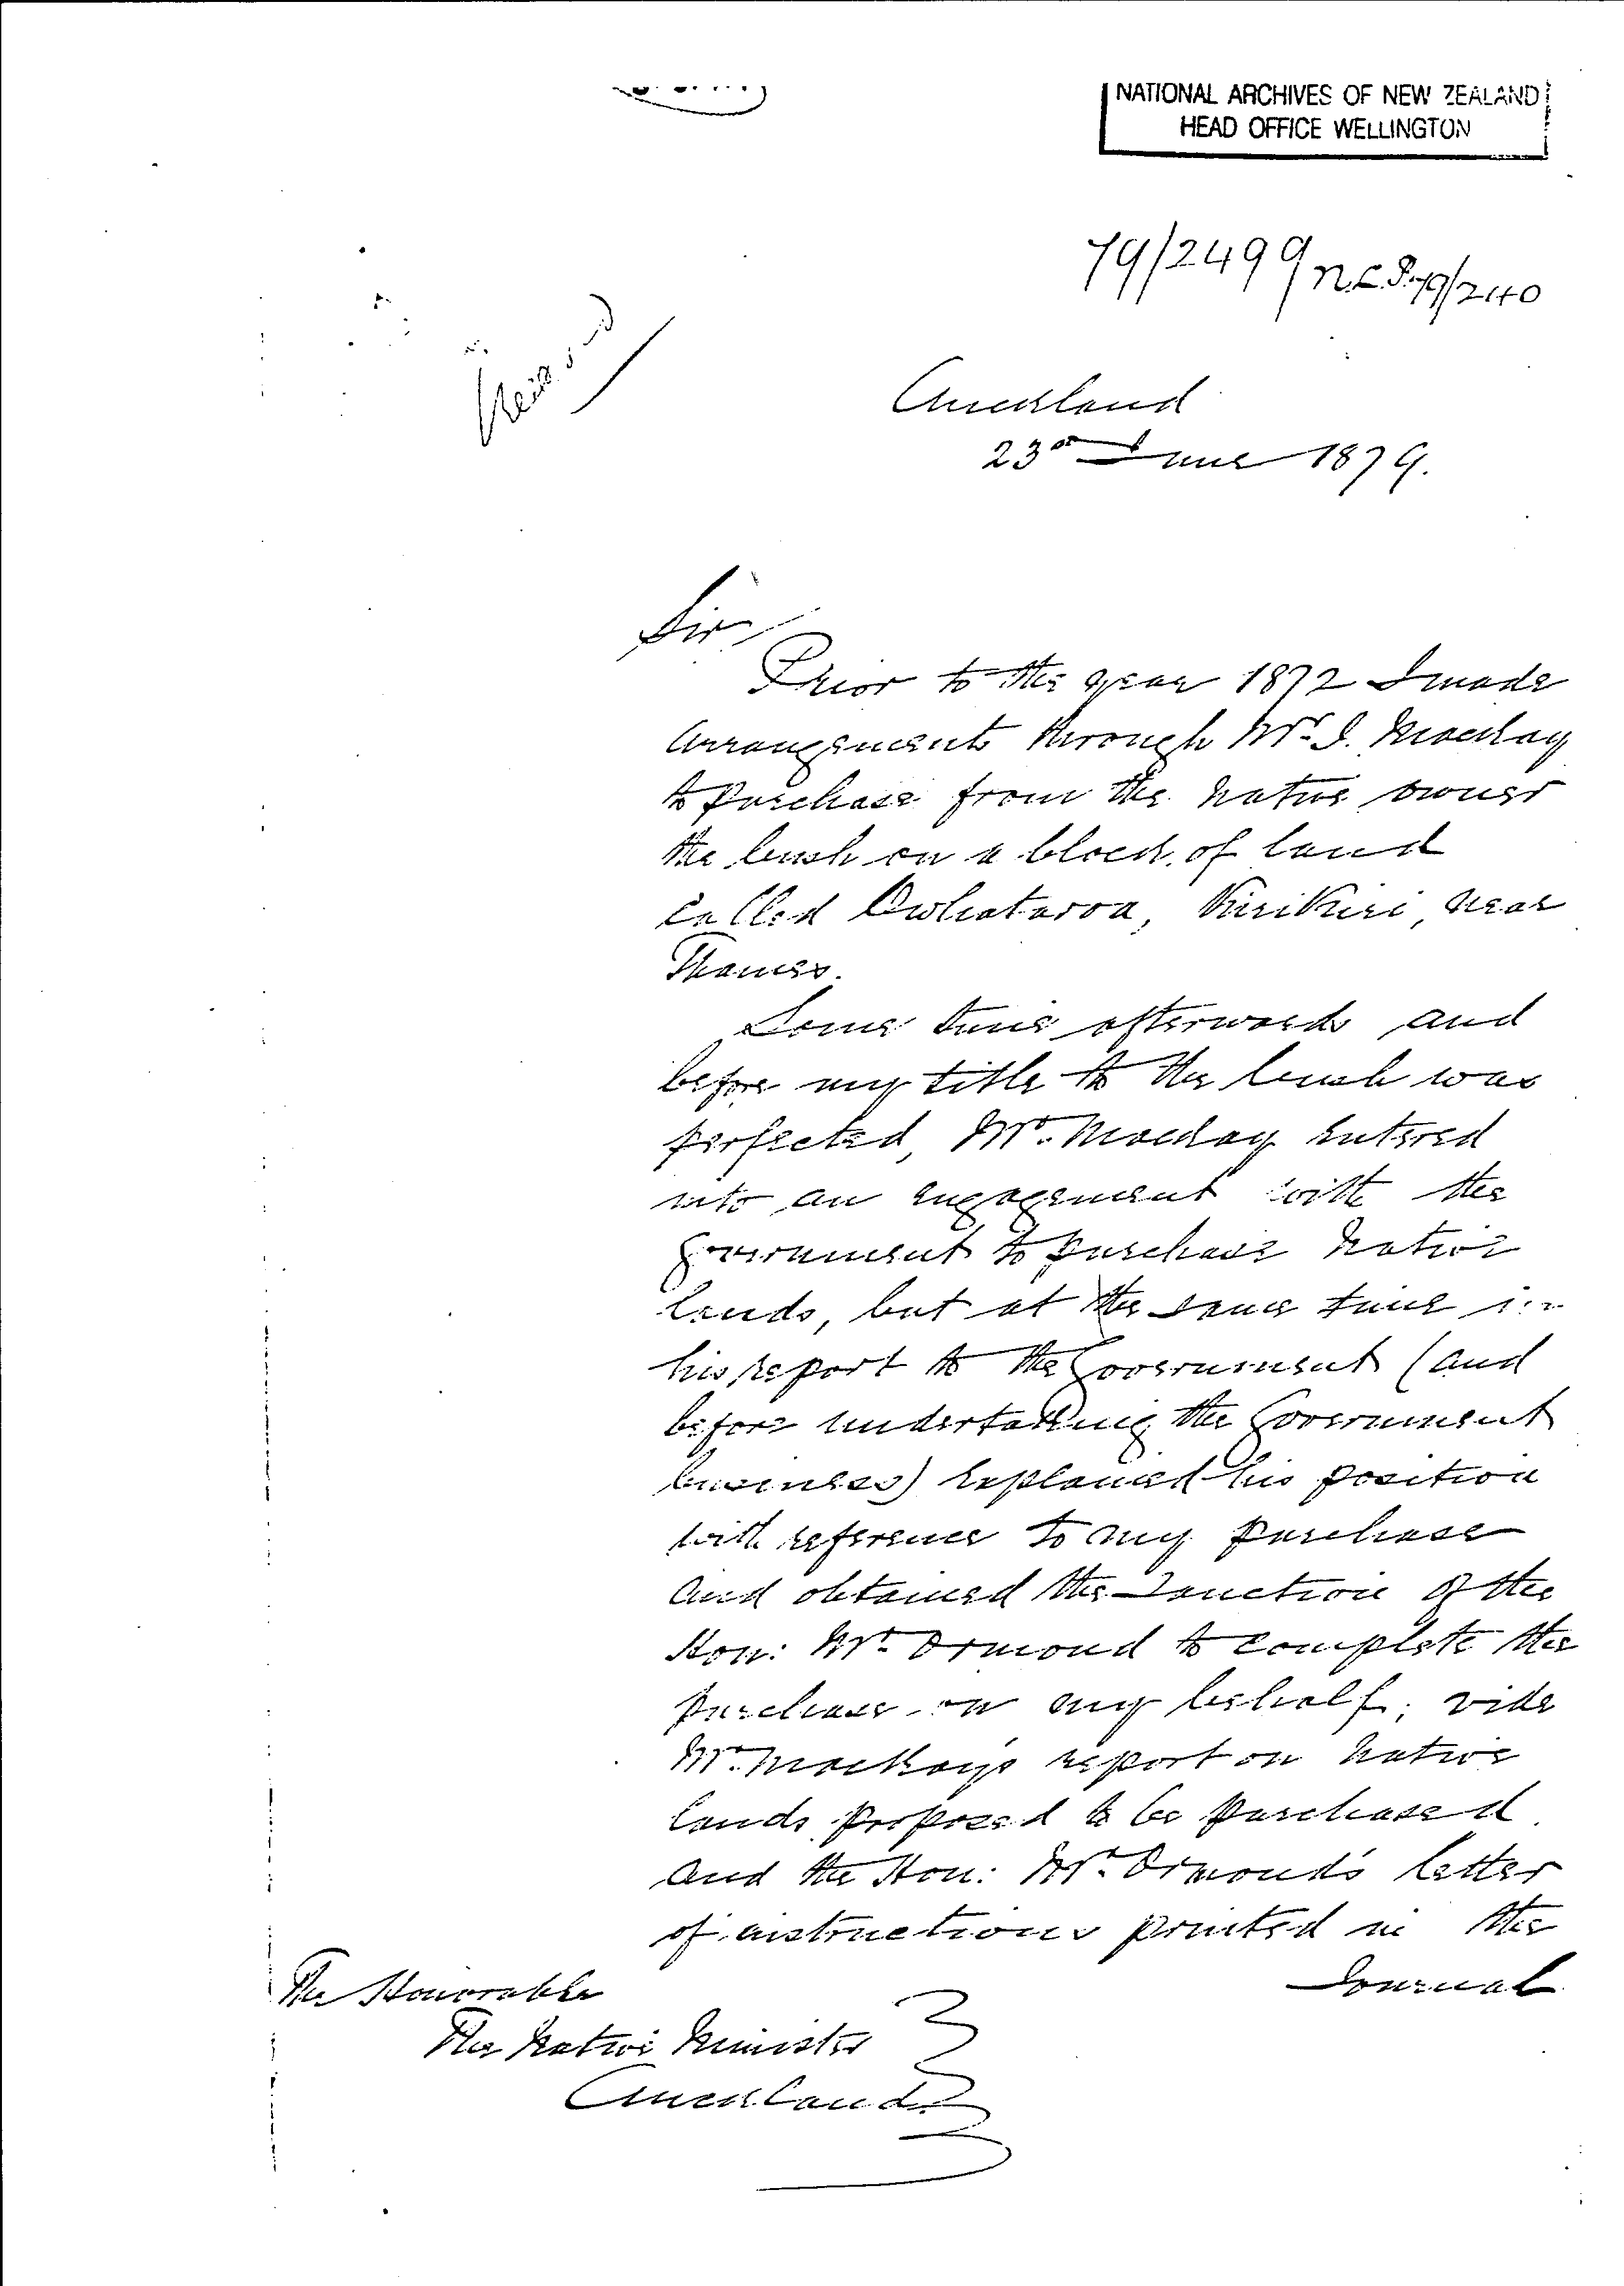 NATIONAL ARCHIVES OF NEW ZEALAND
HEAD OFFICE WELLINGTON
79/2499
N.L.P. 79/240
Auckland
23rd June 1879.
Sir,
Prior to the year 1872 I made
arrangements through Mr. J. Mackay
to purchase from the native owner
the bush on a block of land
called Owhataroa, Kirikiri, near
Thames.
Some time afterwards and
before my title to the bush was
perfected, Mr. Mackay entered
into an engagement with the
Government to purchase native
lands, but at the same time in
his report to the Government (and
before undertaking the Government
business) explained his position
with reference to my purchase
and obtained the sanction of the
Hon: Mr. Ormond to complete the
purchase on my behalf; vide
Mr. Mackay's report on native
lands proposed to be purchased
and the Hon: Mr. Ormond's letter
of instructions printed in the
Journal
The Honorable
The Native Minister
Auckland